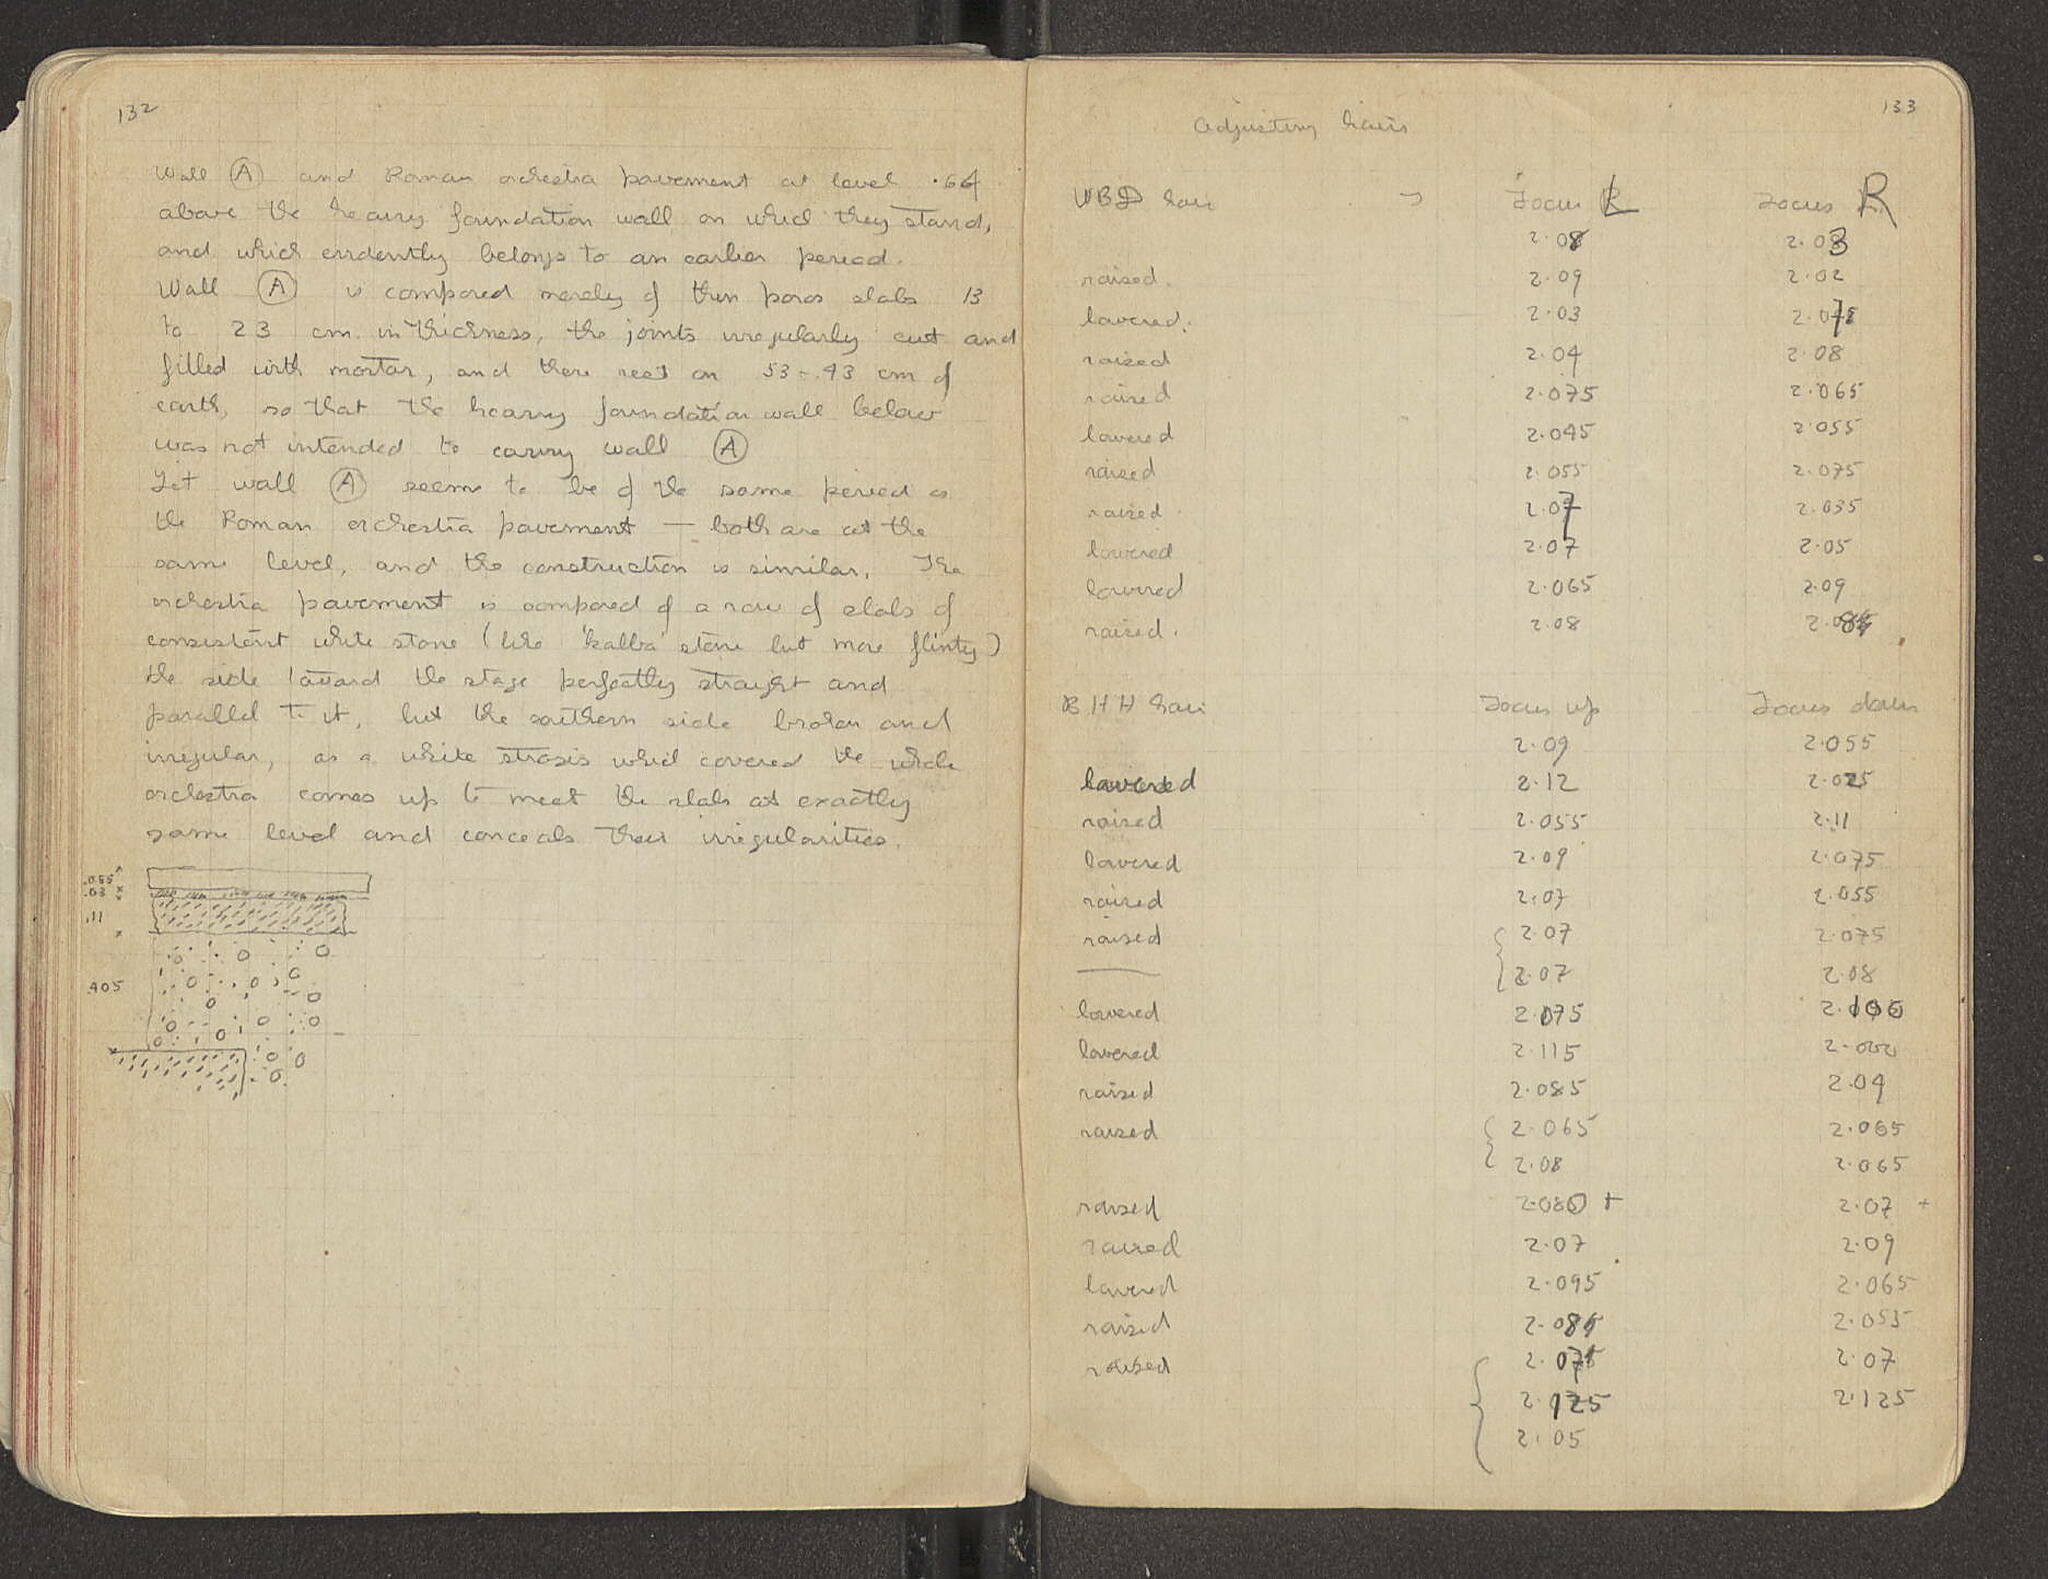 132
Wall (A) and Roman orchestra pavement at level .64
above the heavy foundation wall on which they stand,
and which evidently belongs to an earlier period.
Wall (A) is composed merely of thin poros slabs 13
to 23 cm. in thickness, the joints irregularly cut and
filled with mortar, and these rest on 53-.43 cm of
earth, so that the heavy foundation wall below
was not intended to carry wall (A)
Yet wall (A) seems to be of the same period as
the Roman orchestra pavement — both are at the
same level, and the construction is similar. The
orchestra pavement is composed of a row of slabs of
consistent white stone (like 'kallra' stone but more flinty)
the side toward the stage perfectly straight and
parallel to it, but the southern side broken and
irregular, as a white strosis which covered the whole
orchestra comes up to meet the slabs at exactly
same level and conceals their irregularities.
.055
.03
.11
.405
133
Adjusting hairs
WBD hair Focus L Focus R
2.08 2.03
raised. 2.09 2.02
lowered. 2.03
raised 2.04 2.08
raised 2.075 2.065
lowered 2.045 2.055
raised 2.055 2.075
raised. 2.07 2.035
lowered 2.07 2.05
lowered 2.065 2.09
raised. 2.08
BHH hair Focus up Focus down
2.09 2.055
lowered 2.12 2.025
raised 2.055 2.11
lowered 2.09 2.075
raised 2.07 2.055
raised 2.07 2.075
— 2.07 2.08
lowered 2.075
lowered 2.115
raised 2.085 2.04
raised 2.065 2.065
2.08 2.065
raised 2.080 + 2.07 +
raised 2.07 2.09
lowered 2.095 2.065
raised 2.055
raised 2.07
2.125 2.125
2.05